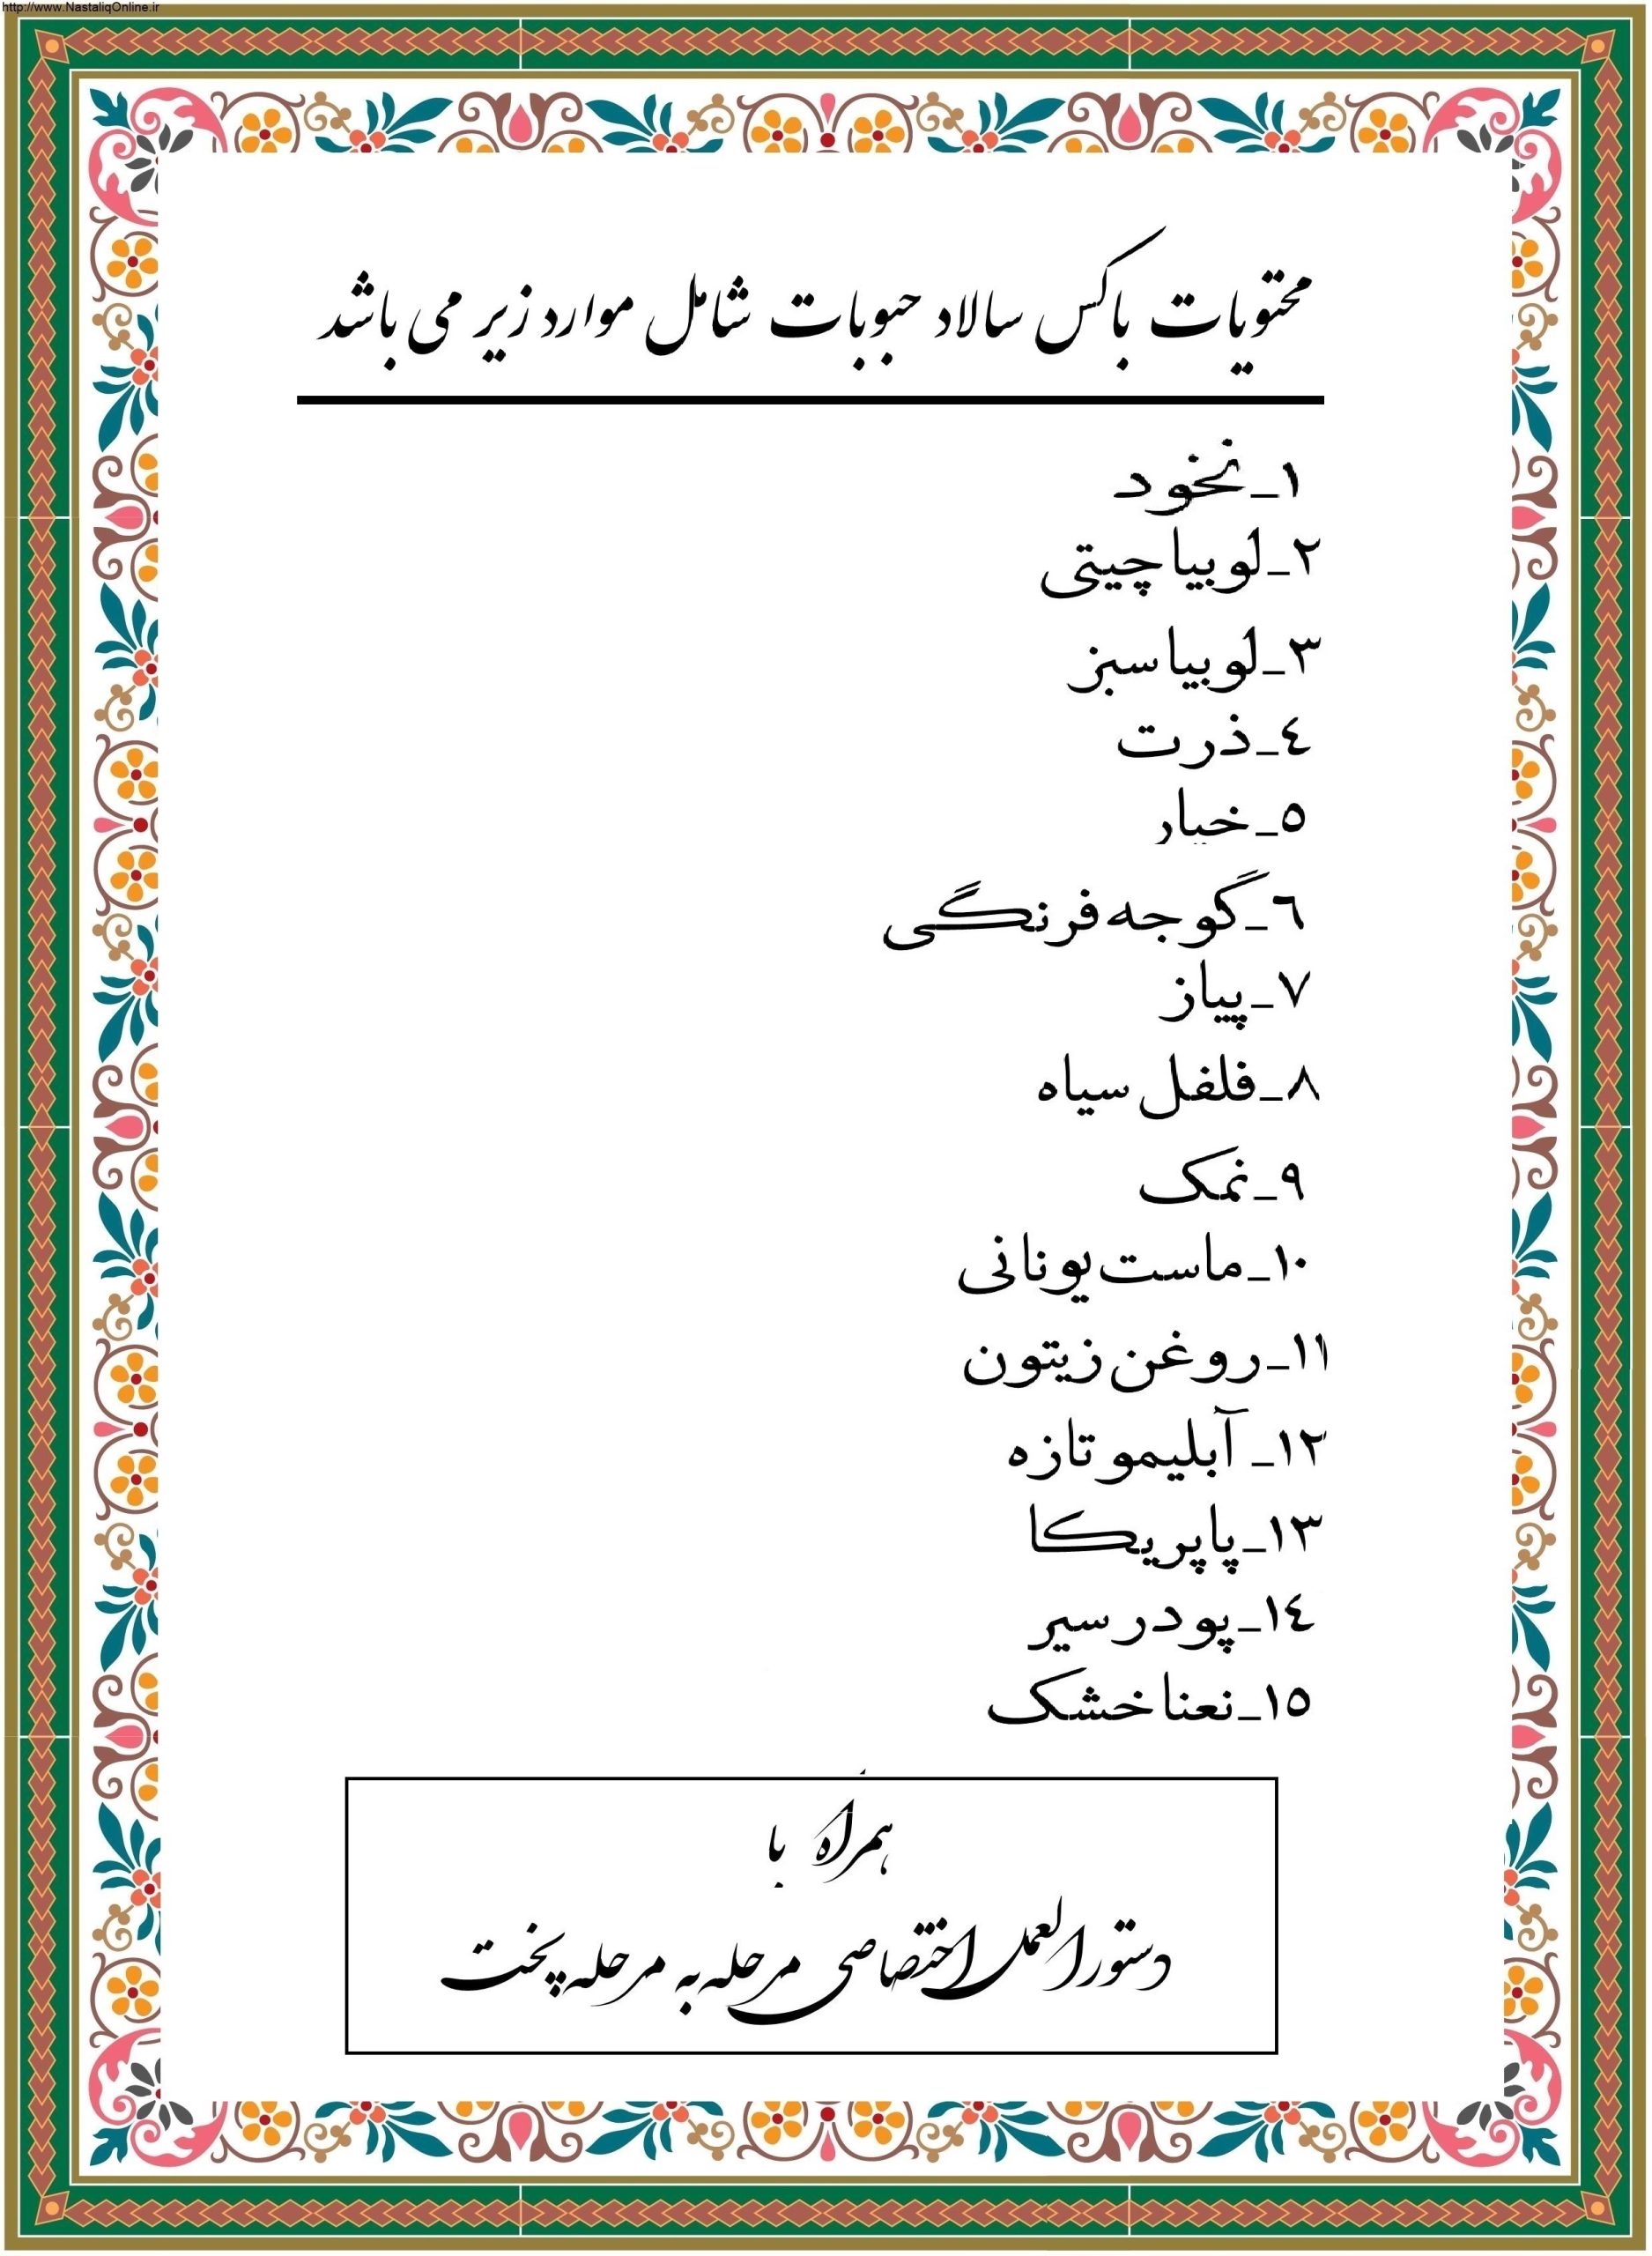 http://www.NastaliqOnline.ir
محتویات باکس سالاد حبوبات شامل موارد زیر می باشد
١_نخود
٢_لوبیا چیتی
٣_لوبیا سبز
٤_ذرت
٥_خیار
٦_گوجه فرنگی
٧_پیاز
٨_فلفل سیاه
٩_نمک
١٠_ماست یونانی
١١_روغن زیتون
١٢_آبلیمو تازه
١٣_پاپریکا
١٤_پودر سیر
١٥_نعنا خشک
همراه با
دستورالعمل اختصاصی مرحله به مرحله پخت